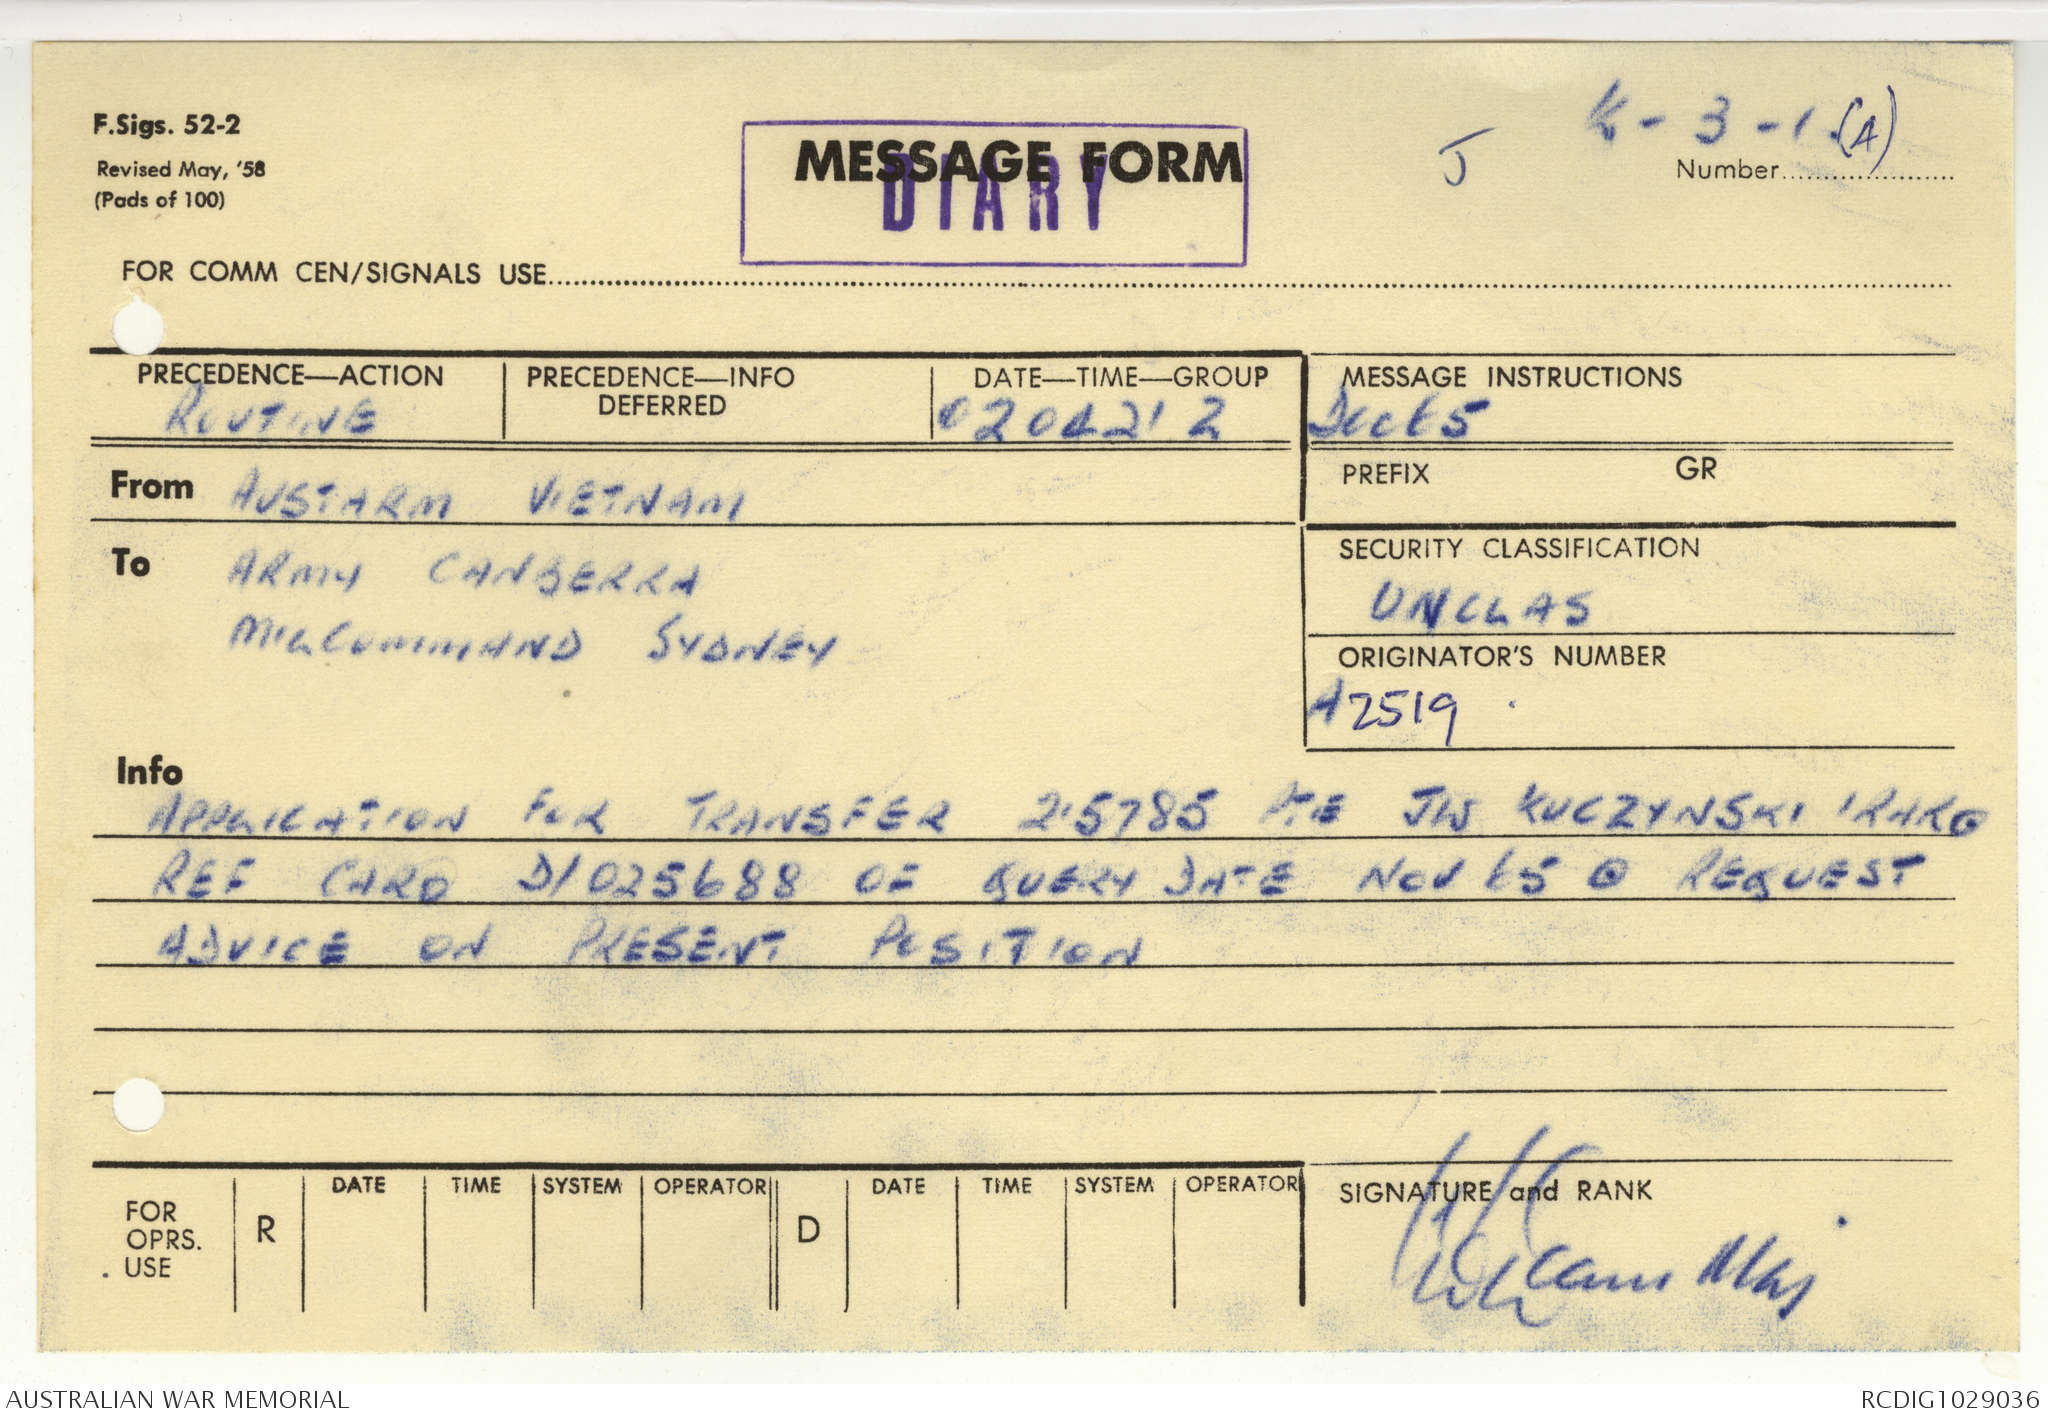 F.Sigs. 52-2
Revised May, '58
(Pads of 100)
MESSAGE FORM
DIARY
J
K-3-1 (A)
Number
FOR COMM CEN/SIGNALS USE
PRECEDENCE—ACTION
ROUTINE
PRECEDENCE—INFO
DEFERRED
DATE—TIME—GROUP
020421Z
MESSAGE INSTRUCTIONS
Dec 65
PREFIX GR
From AUSTARM VIETNAM
To ARMY CANBERRA
MILCOMMAND SYDNEY
SECURITY CLASSIFICATION
UNCLAS
ORIGINATOR'S NUMBER
A2519
Info
APPLICATION FOR TRANSFER 215785 PTE JW KUCZYNSKI 1RAR
REF CARD D/025688 OF QUERY DATE NOV 65 REQUEST
ADVICE ON PRESENT POSITION
FOR OPRS. USE
R DATE TIME SYSTEM OPERATOR
D DATE TIME SYSTEM OPERATOR
SIGNATURE and RANK
Maj
AUSTRALIAN WAR MEMORIAL
RCDIG1029036